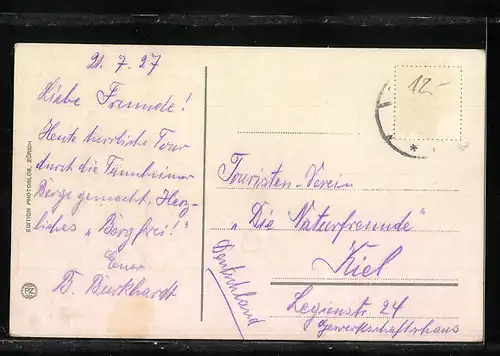 21. 7. 27
Liebe Freunde!
Heute herrliche Tour
durch die Tannheimer
Berge gemacht. Herz-
liches „Bergfrei!"
Euer
B. Burkhardt
EDITION PHOTOGLOB, ZÜRICH
PZ
12.-
Touristen-Verein
„Die Naturfreunde"
Kiel
Deutschland
Legienstr. 24
Gewerkschaftshaus